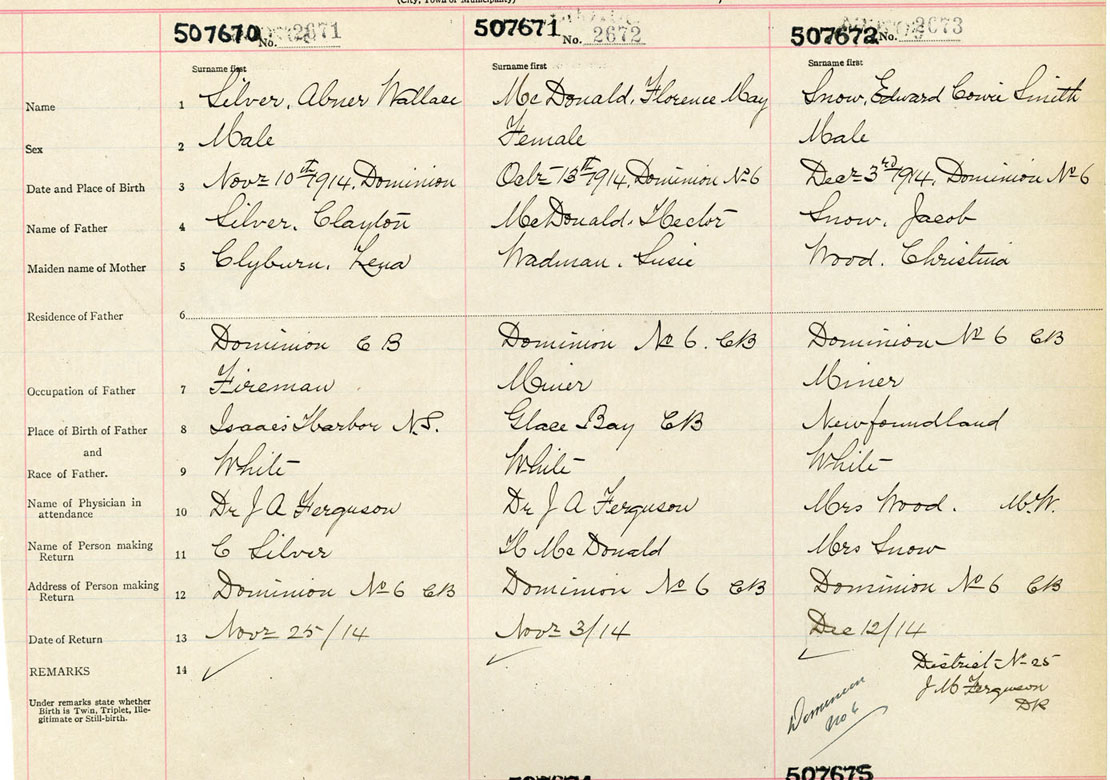 (City, Town or Municipality)
507670 No. 2671 507671 No. 2672 507672 No. 2673
Surname first Surname first Surname first
Name 1 Silver, Abner Wallace Mc Donald, Florence May Snow, Edward Cowie Smith
Sex 2 Male Female Male
Date and Place of Birth 3 Novr 10th 1914, Dominion Octbr 13th 1914, Dominion No 6 Decr 3rd 1914, Dominion No 6
Name of Father 4 Silver, Clayton McDonald, Hector Snow, Jacob
Maiden name of Mother 5 Clyburn, Lena Wadman, Susie Wood, Christina
Residence of Father 6
Dominion C B Dominion No 6. CB Dominion No 6 CB
Occupation of Father 7 Fireman Miner Miner
Place of Birth of Father 8 Isaacs Harbor N.S. Glace Bay CB Newfoundland
and
Race of Father. 9 White White White
Name of Physician in
attendance 10 Dr J A Ferguson Dr J A Ferguson Mrs Wood. M.W.
Name of Person making
Return 11 C Silver H Mc Donald Mrs Snow
Address of Person making
Return 12 Dominion No 6 CB Dominion No 6 CB Dominion No 6 CB
Date of Return 13 Novr 25/14 Novr 3/14 Dec 12/14
REMARKS 14 District No 25
J M Ferguson
DR
Under remarks state whether
Birth is Twin, Triplet, Ille-
gitimate or Still-birth.
Dominion
No 6
507675